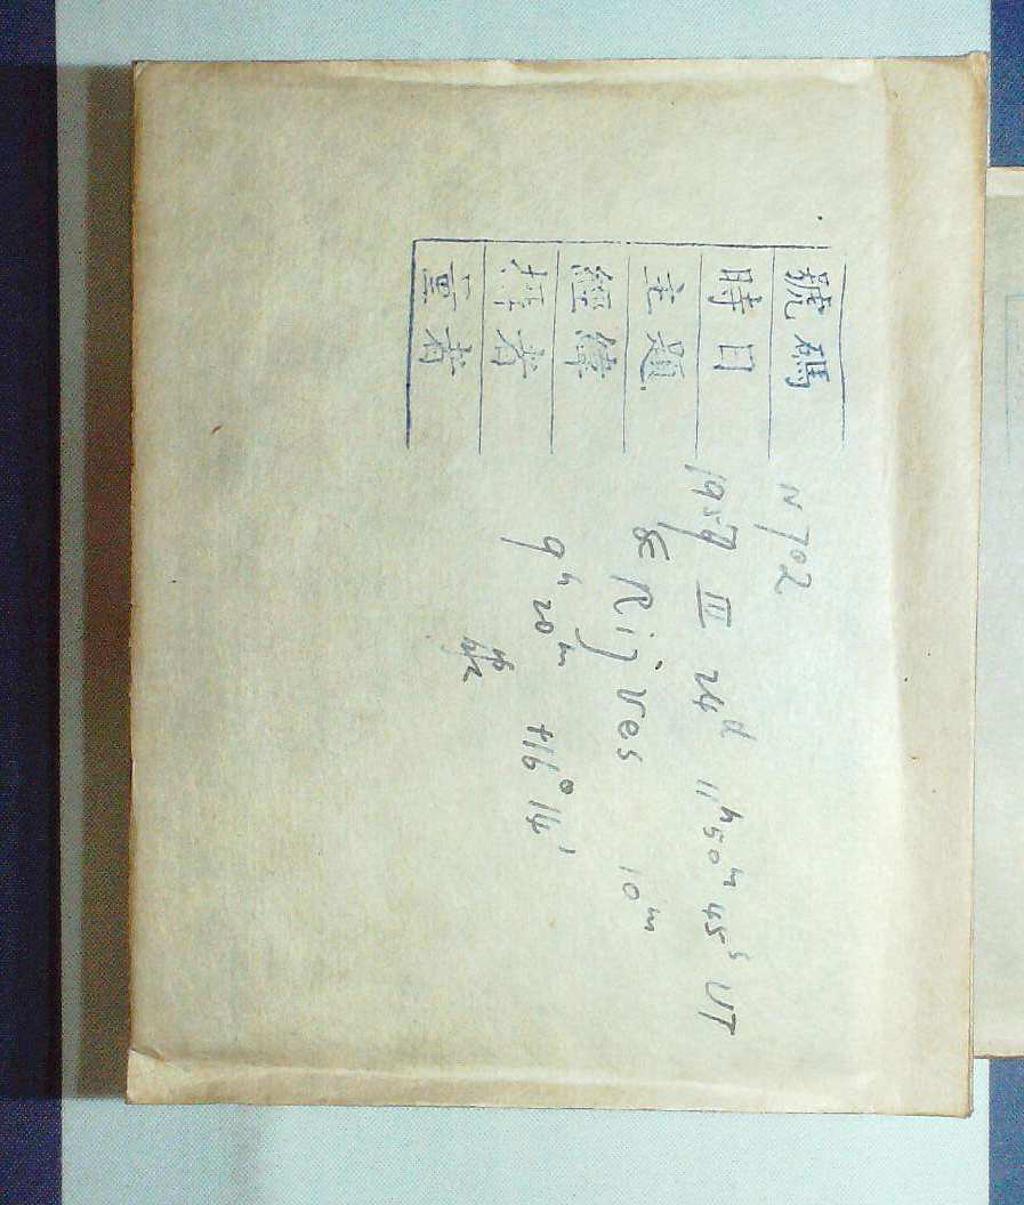 號碼 N702
時日 1957 III 24d 11h50m45s UT
主題 & Rij Ves 10m
經緯 9h20m +16°14'
擇者
量者